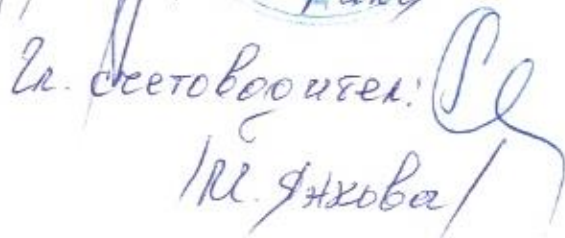 Гл. счетоводител:
/М. Янкова/